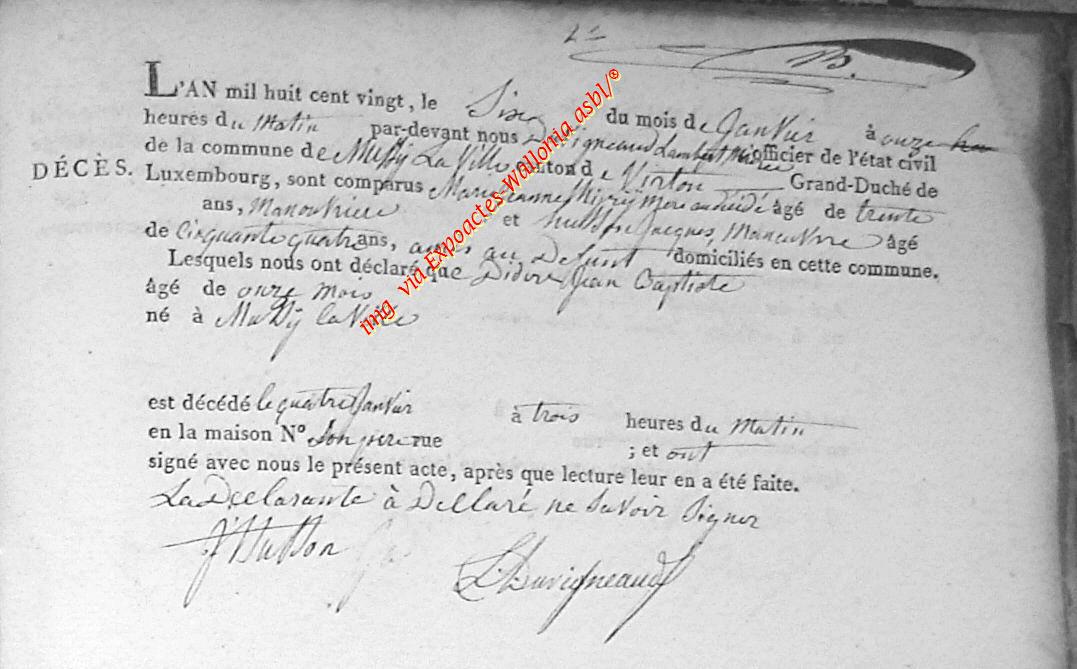 L'AN mil huit cent vingt, le Six du mois de Janvier à onze
heures du Matin par-devant nous Duvigneaud Lambert officier de l'état civil
de la commune de Mussy La Ville canton de Virton Grand-Duché de
DÉCÈS.
Luxembourg, sont comparus Marie Jeanne mère au décédé âgé de trente
ans, Manouvriere et Husson Jacques, Manouvre âgé
de Cinquante quatre ans, au Defunt domiciliés en cette commune.
Lesquels nous ont déclaré que Didier Jean Baptiste
âgé de onze mois
né à Mussy la Ville
est décédé le quatre Janvier à trois heures du Matin
en la maison N° Son pere rue ; et ont
signé avec nous le présent acte, après que lecture leur en a été faite.
La Declarante à Dellaré ne Savoir Signer
J Husson
L Duvigneaud
img via Expoactes-Wallonia asbl/©